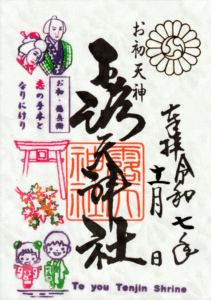 お初天神
奉拝
令和七年
十一月 日
露天神社
お初・徳兵衛
恋の手本と
なりにけり
露天
神社
To you Tenjin Shrine